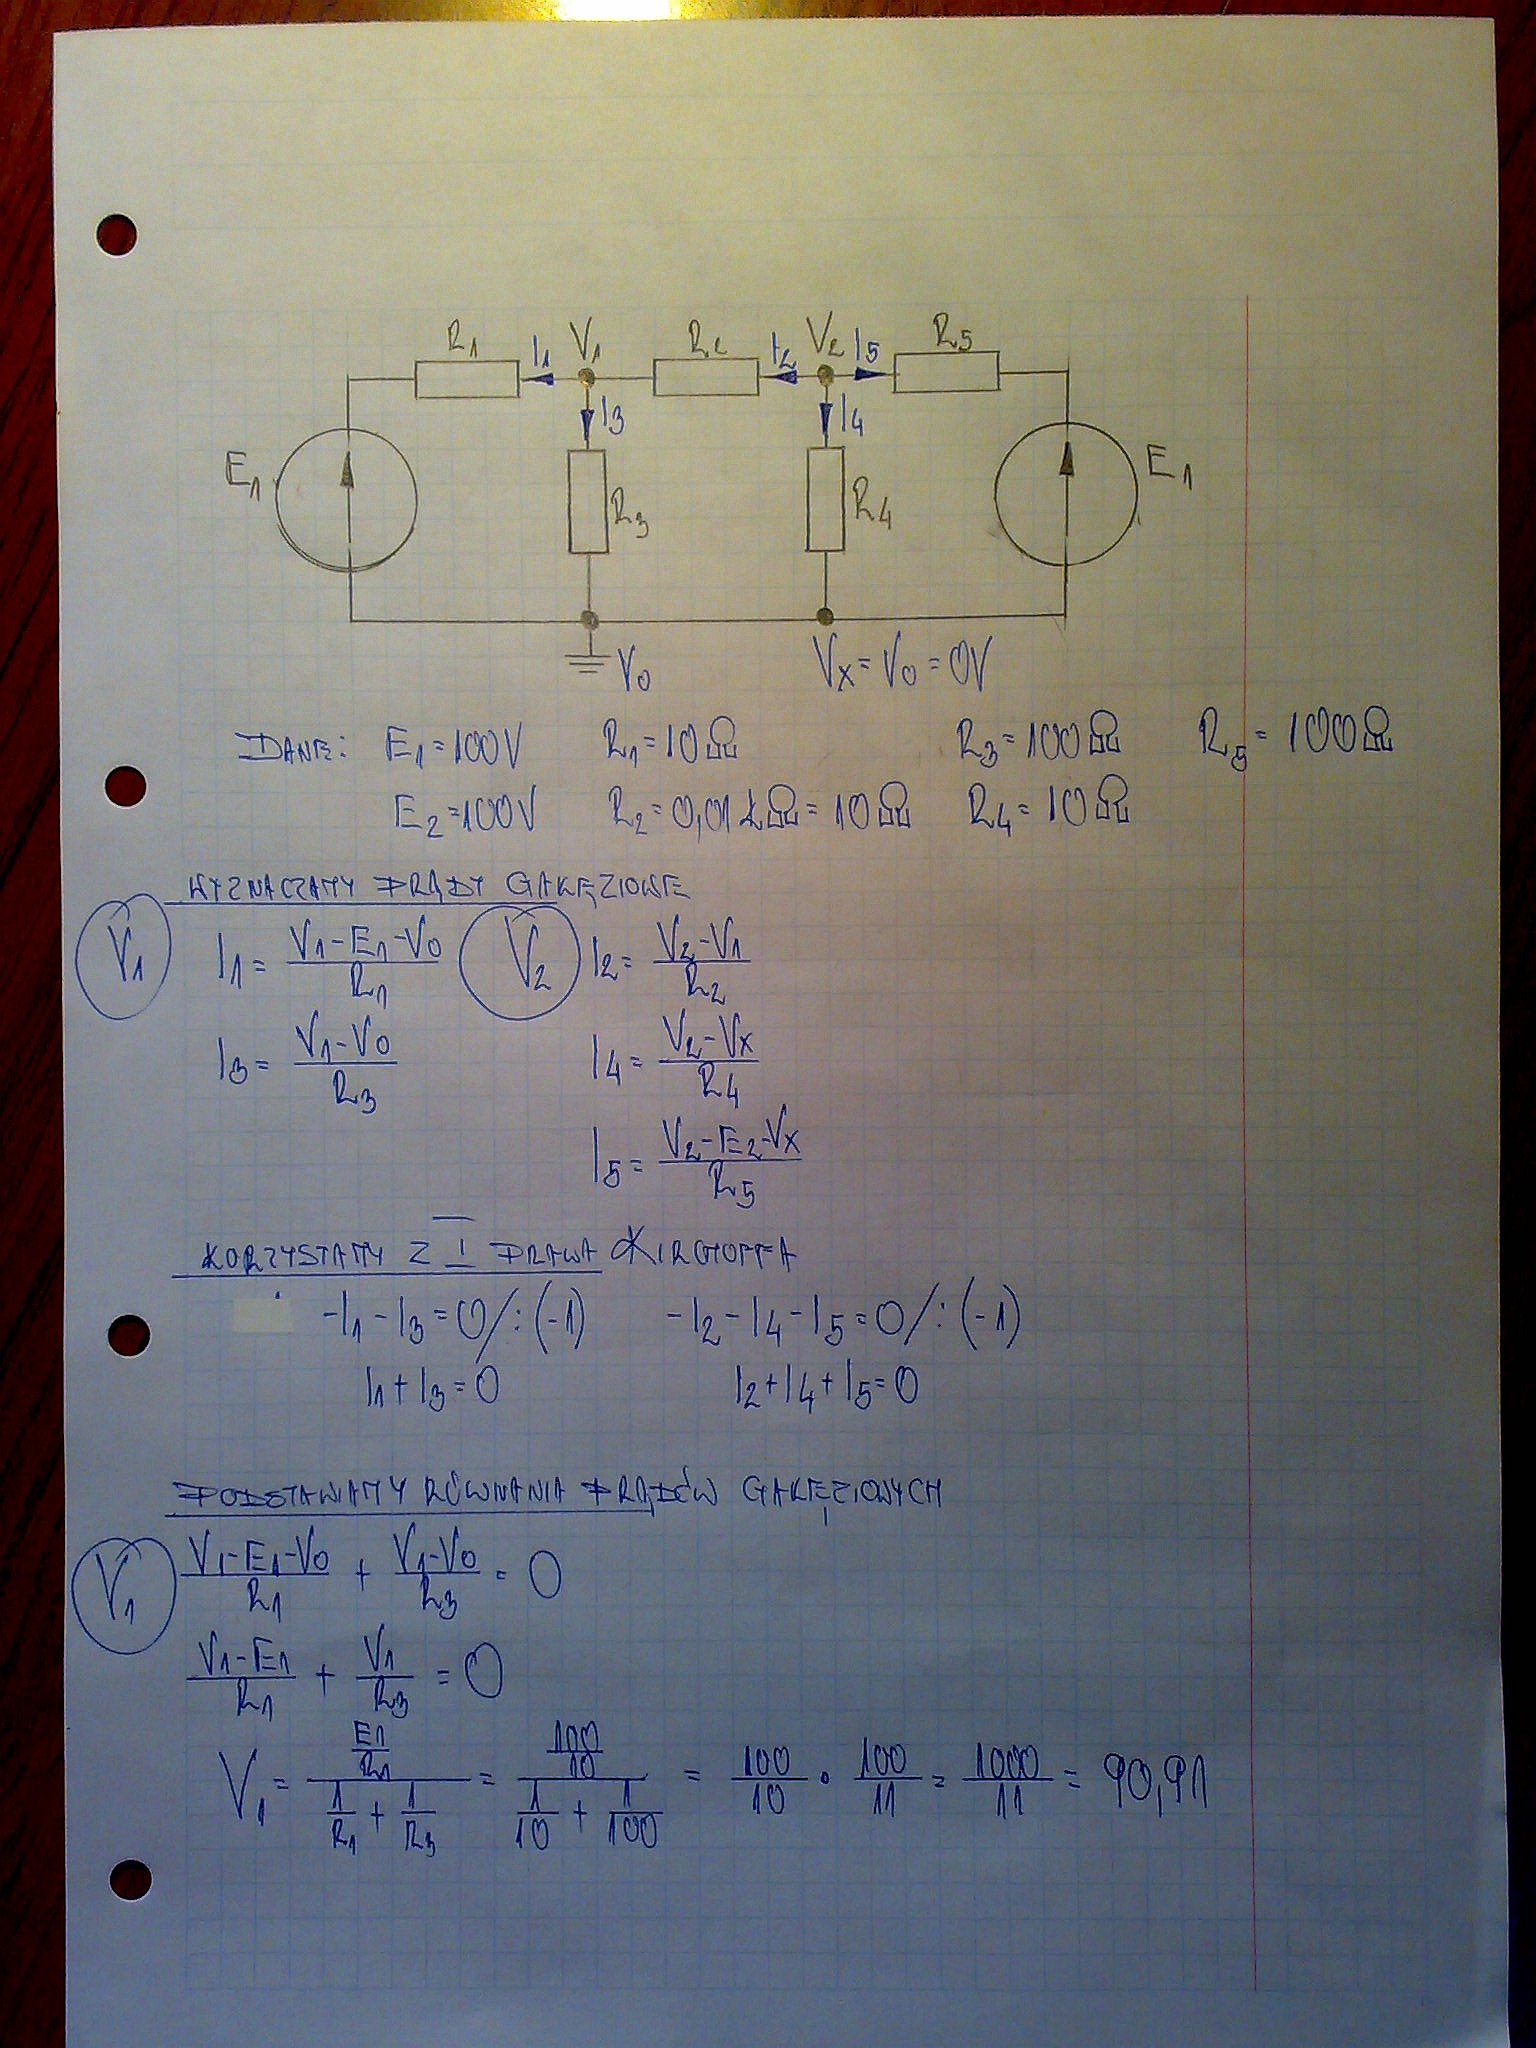 R1 I1 V1 R2 I2 V2 I5 R5
E1 I3 R3 I4 R4 E1
V0 Vx = V0 = 0V
DANE: E1 = 100V R1 = 10Ω R3 = 100Ω R5 = 100Ω
E2 = 100V R2 = 0,01kΩ = 10Ω R4 = 10Ω
WYZNACZAMY PRĄDY GAŁĘZIOWE
V1 I1 = (V1-E1-V0)/R1 V2 I2 = (V2-V1)/R2
I3 = (V1-V0)/R3 I4 = (V2-Vx)/R4
I5 = (V2-E2-Vx)/R5
KORZYSTAMY Z I PRAWA KIRGHOFFA
-I1 - I3 = 0 /:(-1) -I2 - I4 - I5 = 0 /:(-1)
I1 + I3 = 0 I2 + I4 + I5 = 0
PODSTAWIAMY RÓWNANIA PRĄDÓW GAŁĘZIOWYCH
V1 (V1-E1-V0)/R1 + (V1-V0)/R3 = 0
(V1-E1)/R1 + V1/R3 = 0
V1 = (E1/R1)/(1/R1 + 1/R3) = (100/10)/(1/10 + 1/100) = 100/10 · 100/11 = 1000/11 = 90,91